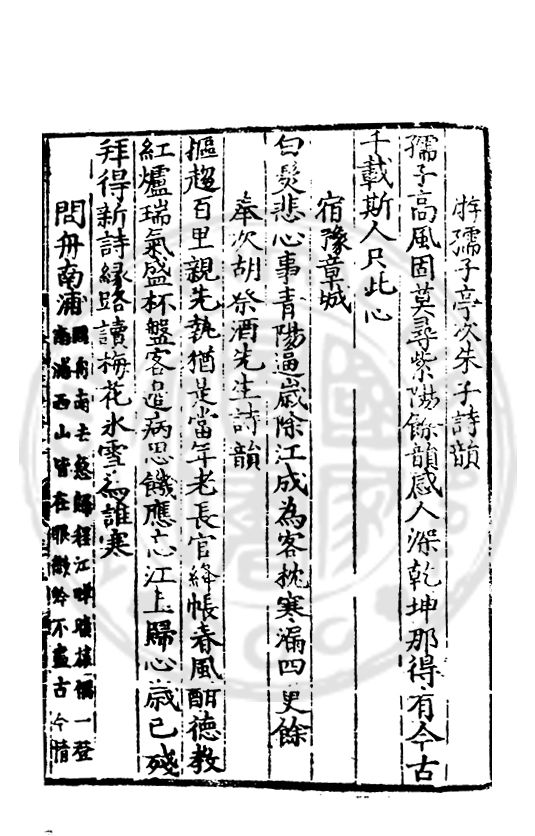 游孺子亭次朱子詩韻
孺子高風固莫尋紫陽餘韻感人深乾坤那得有今古
千載斯人只此心
宿豫章城
白髮悲心事青陽逼歲除江成為客枕寒漏四更餘
奉次胡祭酒先生詩韻
摳趨百里親先執猶是當年老長官絳帳春風酣德教
紅爐瑞氣盛杯盤客邊病思饑應忘江上歸心歲已殘
拜得新詩緣路讀梅花氷雪為誰寒
問舟南浦
問舟南去歸程江畔一登
南浦西山皆在眼微吟不盡古今情